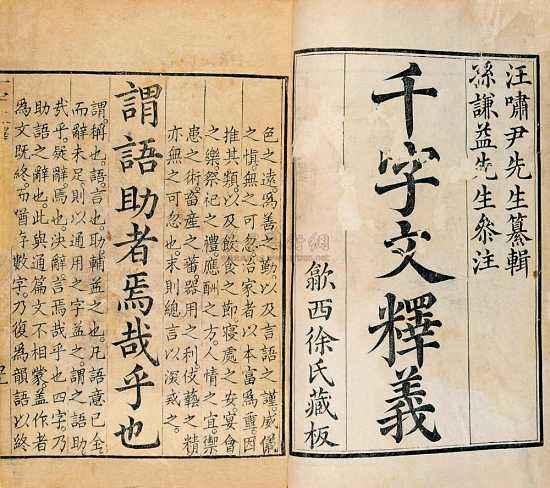 汪嘯尹先生纂輯
孫謙益先生參注
千字文釋義
歙西徐氏藏板
色之遠。爲善之勤。以及言語之謹。威儀
之慎。無之可忽。治家者以本富爲重。因
推其類。以及飲食之節。寢處之安。宴會
之樂。祭祀之禮。應酬之方。人情之宜。禦
患之術。畜產之蕃。器用之利。伎藝之精。
亦無之可忽也。末則總言以深戒之。
謂語助者焉哉乎也
謂。稱也。語。言也。助。輔益之也。凡語意已全
而辭未足。則以通用之字益之。謂之語助
哉乎。疑辭。焉也。決辭。言焉哉乎也四字。乃
助語之辭也。此與通篇文不相蒙。盖作者
爲文既終。而留有數字。乃復爲韻語以終